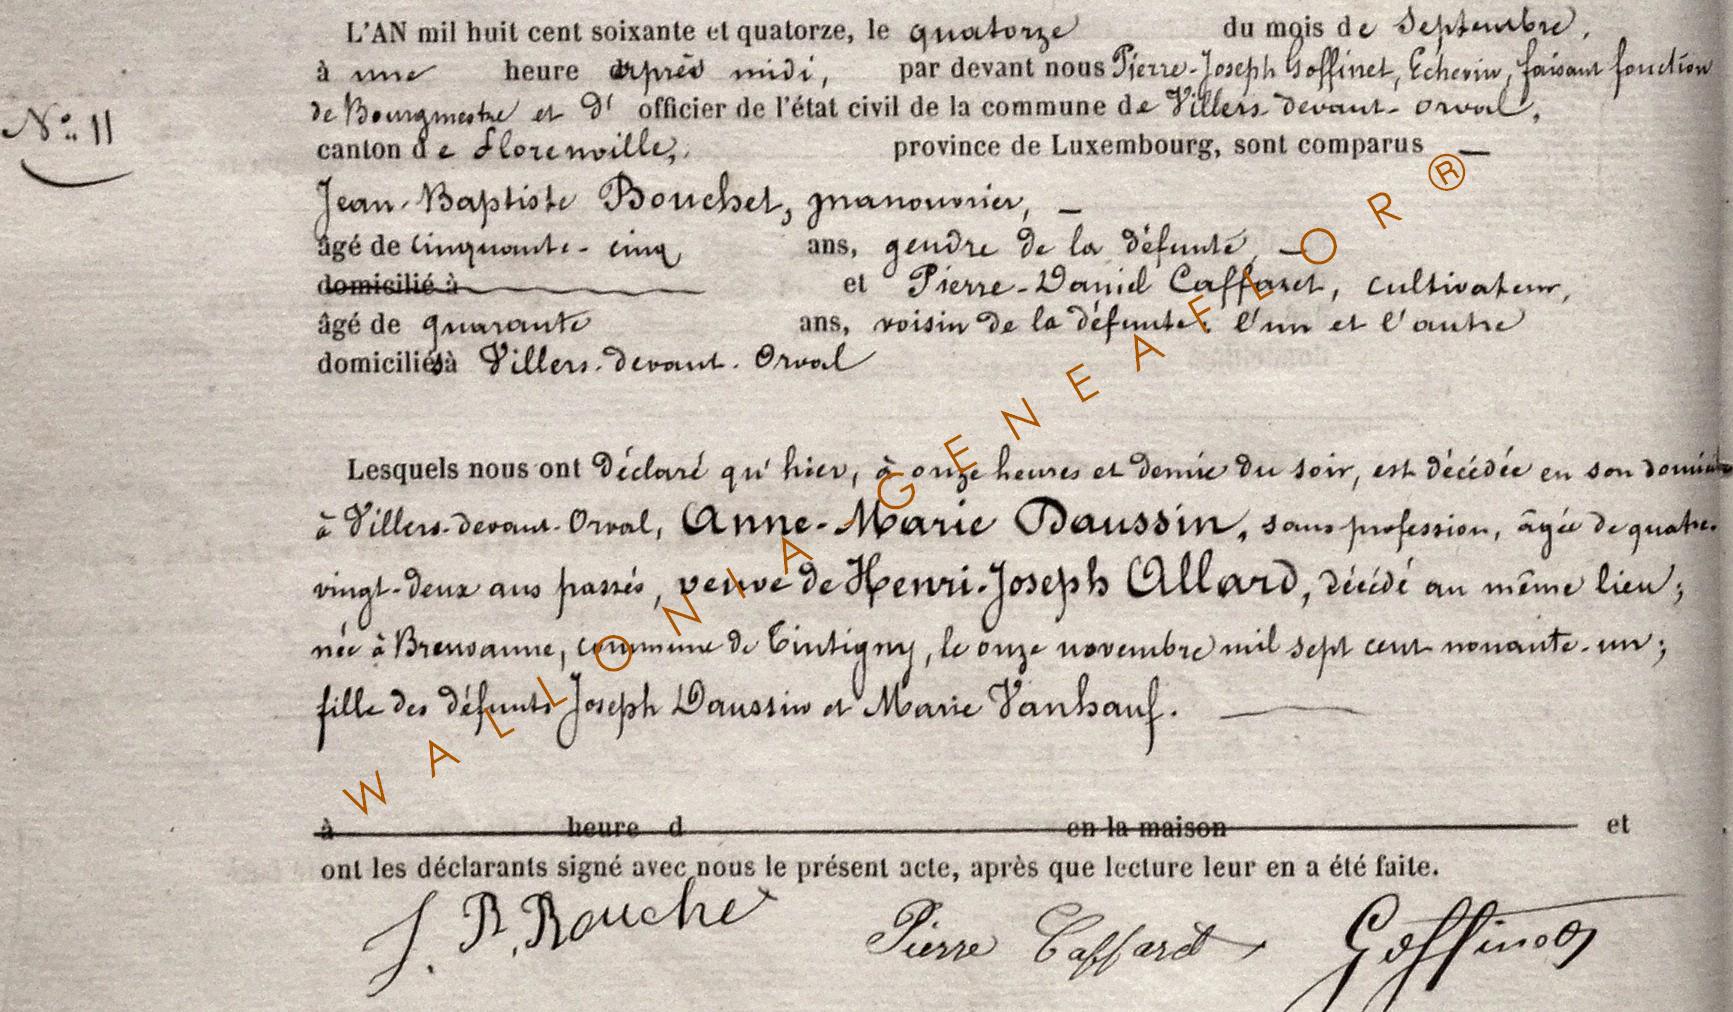 L'AN mil huit cent soixante et quatorze, le quatorze du mois de Septembre,
à une heure après midi, par devant nous Pierre-Joseph Goffinet, Echevin, faisant fonction
N° 11
de Bourgmestre et d' officier de l'état civil de la commune de Villers-devant-Orval,
canton de Florenville, province de Luxembourg, sont comparus —
Jean-Baptiste Bouchet, manouvrier, —
âgé de cinquante-cinq ans, gendre de la défunte, —
domicilié à et Pierre-Daniel Caffaret, cultivateur,
âgé de quarante ans, voisin de la défunte; l'un et l'autre
domiciliés à Villers-devant-Orval
Lesquels nous ont déclaré qu'hier, à onze heures et demie du soir, est décédée en son
à Villers-devant-Orval, Anne-Marie Daussin, sans profession, âgée de quatre-
vingt-deux ans passés, veuve de Henri-Joseph Allard, décédé au même lieu;
née à Breuvanne, commune de Tintigny, le onze novembre mil sept cent nonante-un;
fille des défunts Joseph Daussin et Marie Vanhauf. —
à heure d en la maison et
ont les déclarants signé avec nous le présent acte, après que lecture leur en a été faite.
J. B. Bouche Pierre Caffaret Goffinet
WALLONIA GENEAFLOR ®